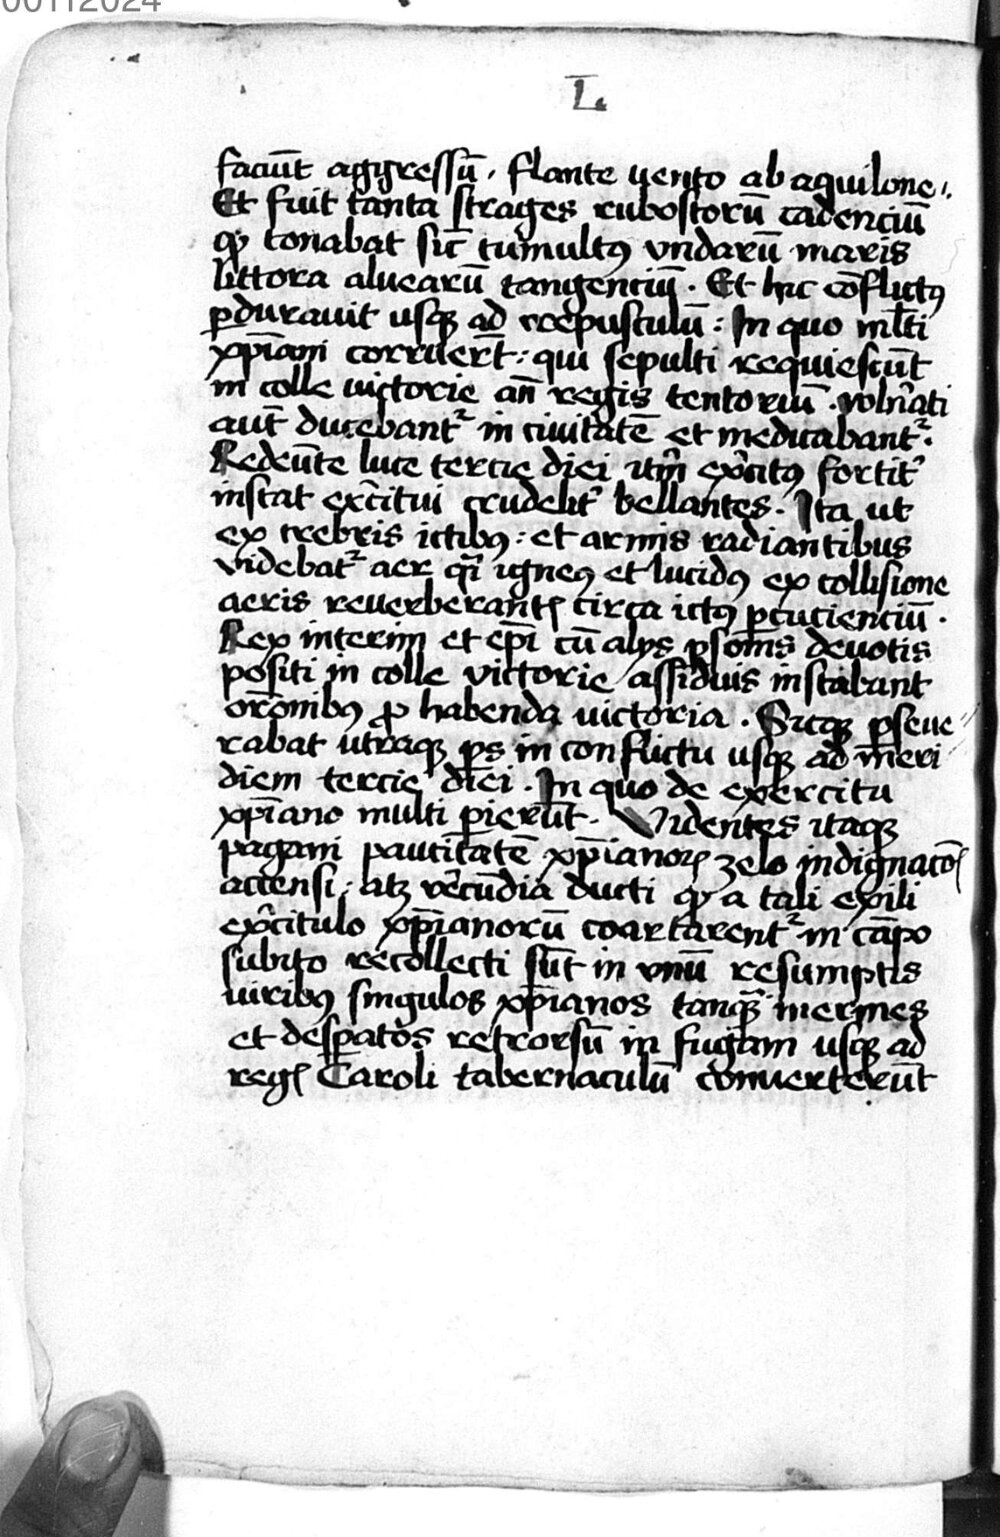 00112024
L.
faciūt aggressū. flante uento ab aquilone.
Et fuit tanta strages robostorū cadenciū
qꝫ tonabat sic̄ tumultꝰ vndarū maris
littora aluearū tangenciū. Et hic cōflictꝰ
ꝑdurauit usqꝫ ad crepusculū: In quo ml̄ti
xp̄iani corruer̄t: qui sepulti requiescūt
in colle victorie an̄ regis tentoriū. volnˀati
aūt ducebantᷣ in ciuitatē et medicabantᷣ.
Redeūte luce tercie diei itm̄ exˀcitꝰ fortitˀ
instat exˀcitui crudelitˀ bellantes. Ita ut
ex crebris ictibꝰ: et armis radiantibus
videbatᷣ aer qˢi igneꝰ et lucidꝰ ex collisione
aeris reuerberantꝭ circa ictꝰ ꝑcucienciū.
Rex interim et ep̄i cū alijs ꝑsonīs deuotis
positi in colle victorie assiduis instabant
orōnibꝰ ꝓ habenda victoria. Sicqꝫ ꝑseue
rabat utraqꝫ ꝑs in conflictu usqꝫ ad meri
diem tercie diei. In quo de exercitu
xp̄iano multi ꝑierūt. Videntes itaqꝫ
pagani paucitatē xp̄ianoꝝ zelo indignacōꝭ
accensi: atꝫ vˀecūdia ducti qꝫ a tali exili
exˀcitulo xp̄ianorū coartarentᷣ in cāpo
subito recollecti sūt in vnū resumptis
uiribꝰ singulos xp̄ianos tanqꝫ inermes
et desꝑatos retrorsū in fugam usqꝫ ad
regꝭ Caroli tabernaculū conuerterūt